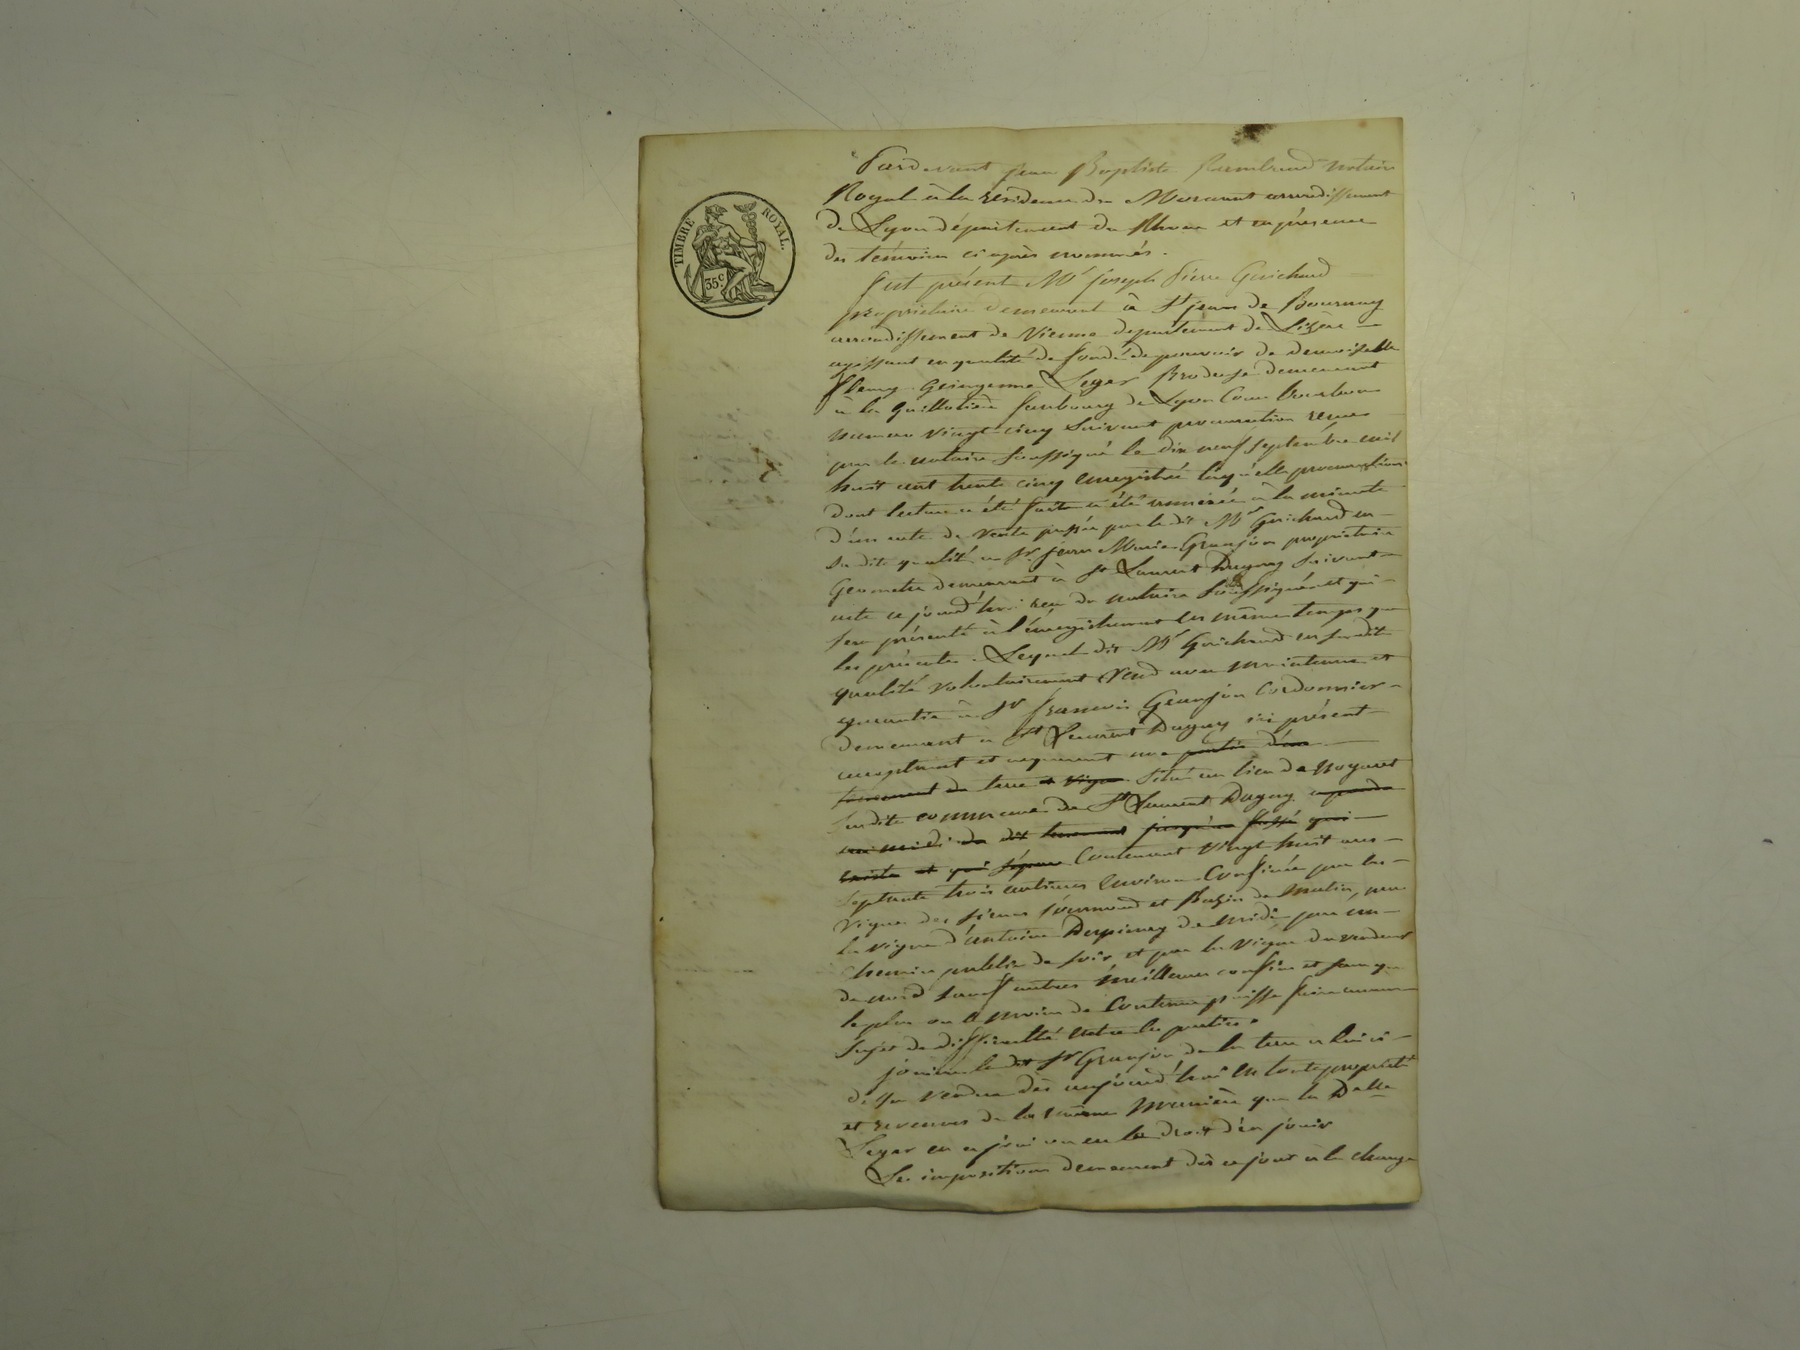 TIMBRE ROYAL.
35c
Pardevant Jean Baptiste notaire
Royal à la résidence de Mornant arrondissement
de Lyon département du Rhône et en présence
des témoins ci après nommés.
fut présent Mr joseph Pierre Guichard
propriétaire demeurant à St jean de Bournay
arrondissement de Vienne département de Lizère
agissant en qualité de fondé de pouvoir de demoiselle
Leger Brodeuse demeurant
à la Guillotière faubourg de Lyon Cours Bourbon
numero vingt cinq Suivant procuration reçue
par le notaire Soussigné le dix neuf Septembre mil
huit cent trente cinq enregistrée laquelle procuration
dont lecture a été faite a été annexée à la minute
d'un acte de Vente passée par le dit Mr Guichard en
Sa dite qualité a Sr jean Marie Granjon propriétaire
Geometre demeurant à St Laurent Dagny Suivant
acte ce jourd'hui reçu du notaire Soussigné et qui
Sera présenté à l'énregistrement en même temps que
les présentes. Lequel dit Mr Guichard en Sa dite
qualité volontairement Vend avec maintenue et
garantie à Sr francois Granjon Cordonnier
demeurant a St Laurent Dagny ici présent
acceptant et acquerant une partie d'un
tenement de terre et vigne Situé au lieu de Noyaret
Sur dite commune de St Laurent Dagny a prendre
au midi du dit tenement jusqu'au fossé qui
existe et qui sépare Contenant vingt huit ares
Septante trois centiares environ Confinée par les
vignes des Sieurs et Bazin de matin, par
la vigne d'antoine de midi, par un
chemin public de soir et par la vigne du vendeur
de nord sauf autres meilleurs confins et sans que
le plus ou le moins de Contenue puisse faire aucun
Sujet de difficulté entre les parties.
jouira le dit Sr Granjon de la terre a lui ci
dessus vendue dès aujourd'hui en toute propriété
et revenus de la même manière que la Dlle
Leger en a joui ou eu le droit d'en jouir
Les impositions demeurent dès ce jour à la charge